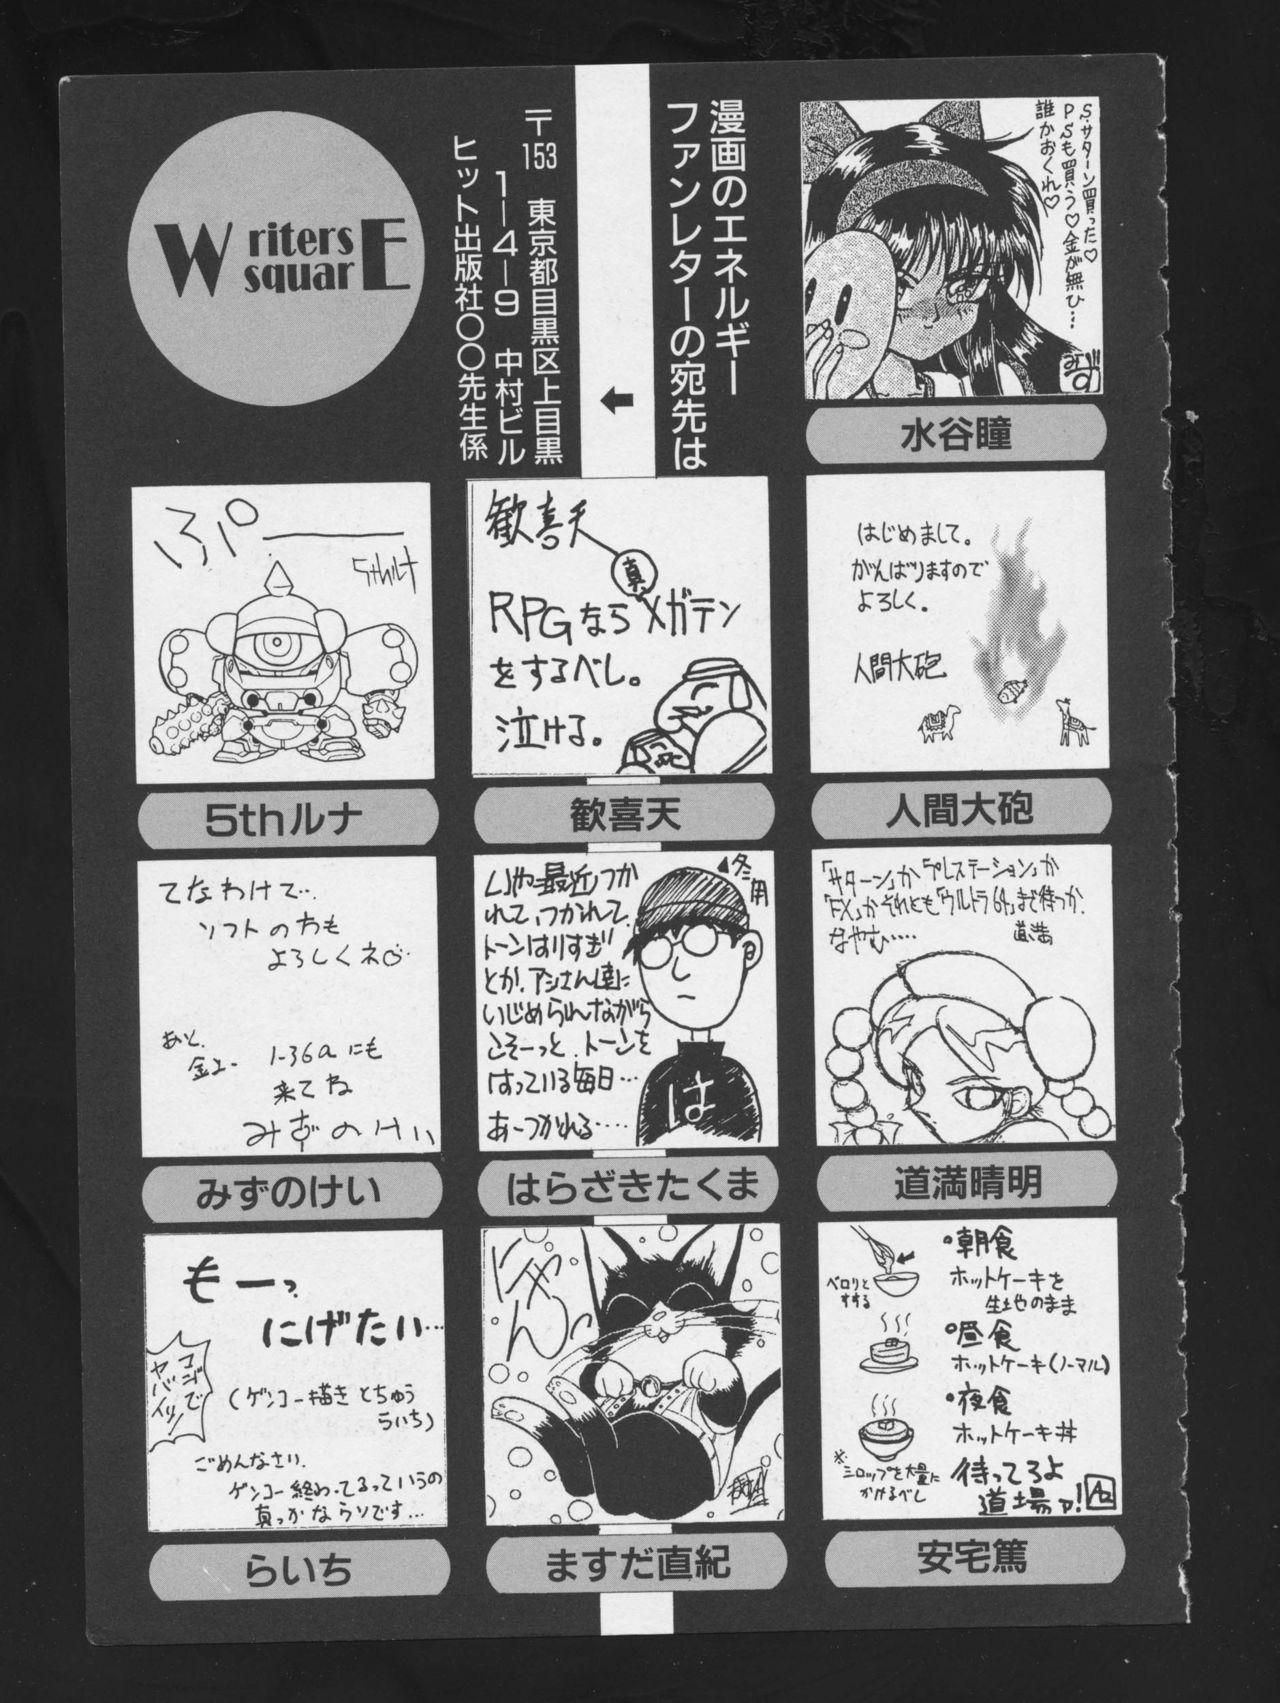 S.サターン買った♡
PSも買う♡金が無ひ…
誰かおくれ♡
みず
水谷瞳
漫画のエネルギー
ファンレターの宛先は
〒153 東京都目黒区上目黒
1-4-9 中村ビル
ヒット出版社〇〇先生係
Writers
squarE
はじめまして。
がんばりますので
よろしく。
人間大砲
人間大砲
歓喜天
真
RPGならメガテン
をするべし。
泣ける。
歓喜天
ぷ°ー
5thルナ
5thルナ
「サターン」か「プレステーション」か
「FX」か それとも「ウルトラ64」まで待つか。
なやむ‥‥
道満
道満晴明
いや最近つか
れて、つかれて
トーンはりすぎ
とか、アシさん達に
いじめられながら
こそーっと、トーンを
はっている毎日…
あーつかれる‥‥
▲冬用
は
はらざきたくま
てなわけで‥
ソフトの方も
よろしくネ
あと、
金エー 1-36aにも
来てね
みずのけい
みずのけい
•朝食
ホットケーキを
生地のまま
ベロリと
すする
•昼食
ホットケーキ(ノーマル)
•夜食
ホットケーキ丼
※シロップを大量に
かけるべし
待ってろよ
道場ァ!
安宅篤
にゃんっ
ますだ直紀
もーっ
にげたい…
コジで
ヤバイッ!
(ゲンコー描きとちゅう
らいち)
ごめんなさい。
ゲンコー終わってるっていうの
真っかなウソです…
らいち